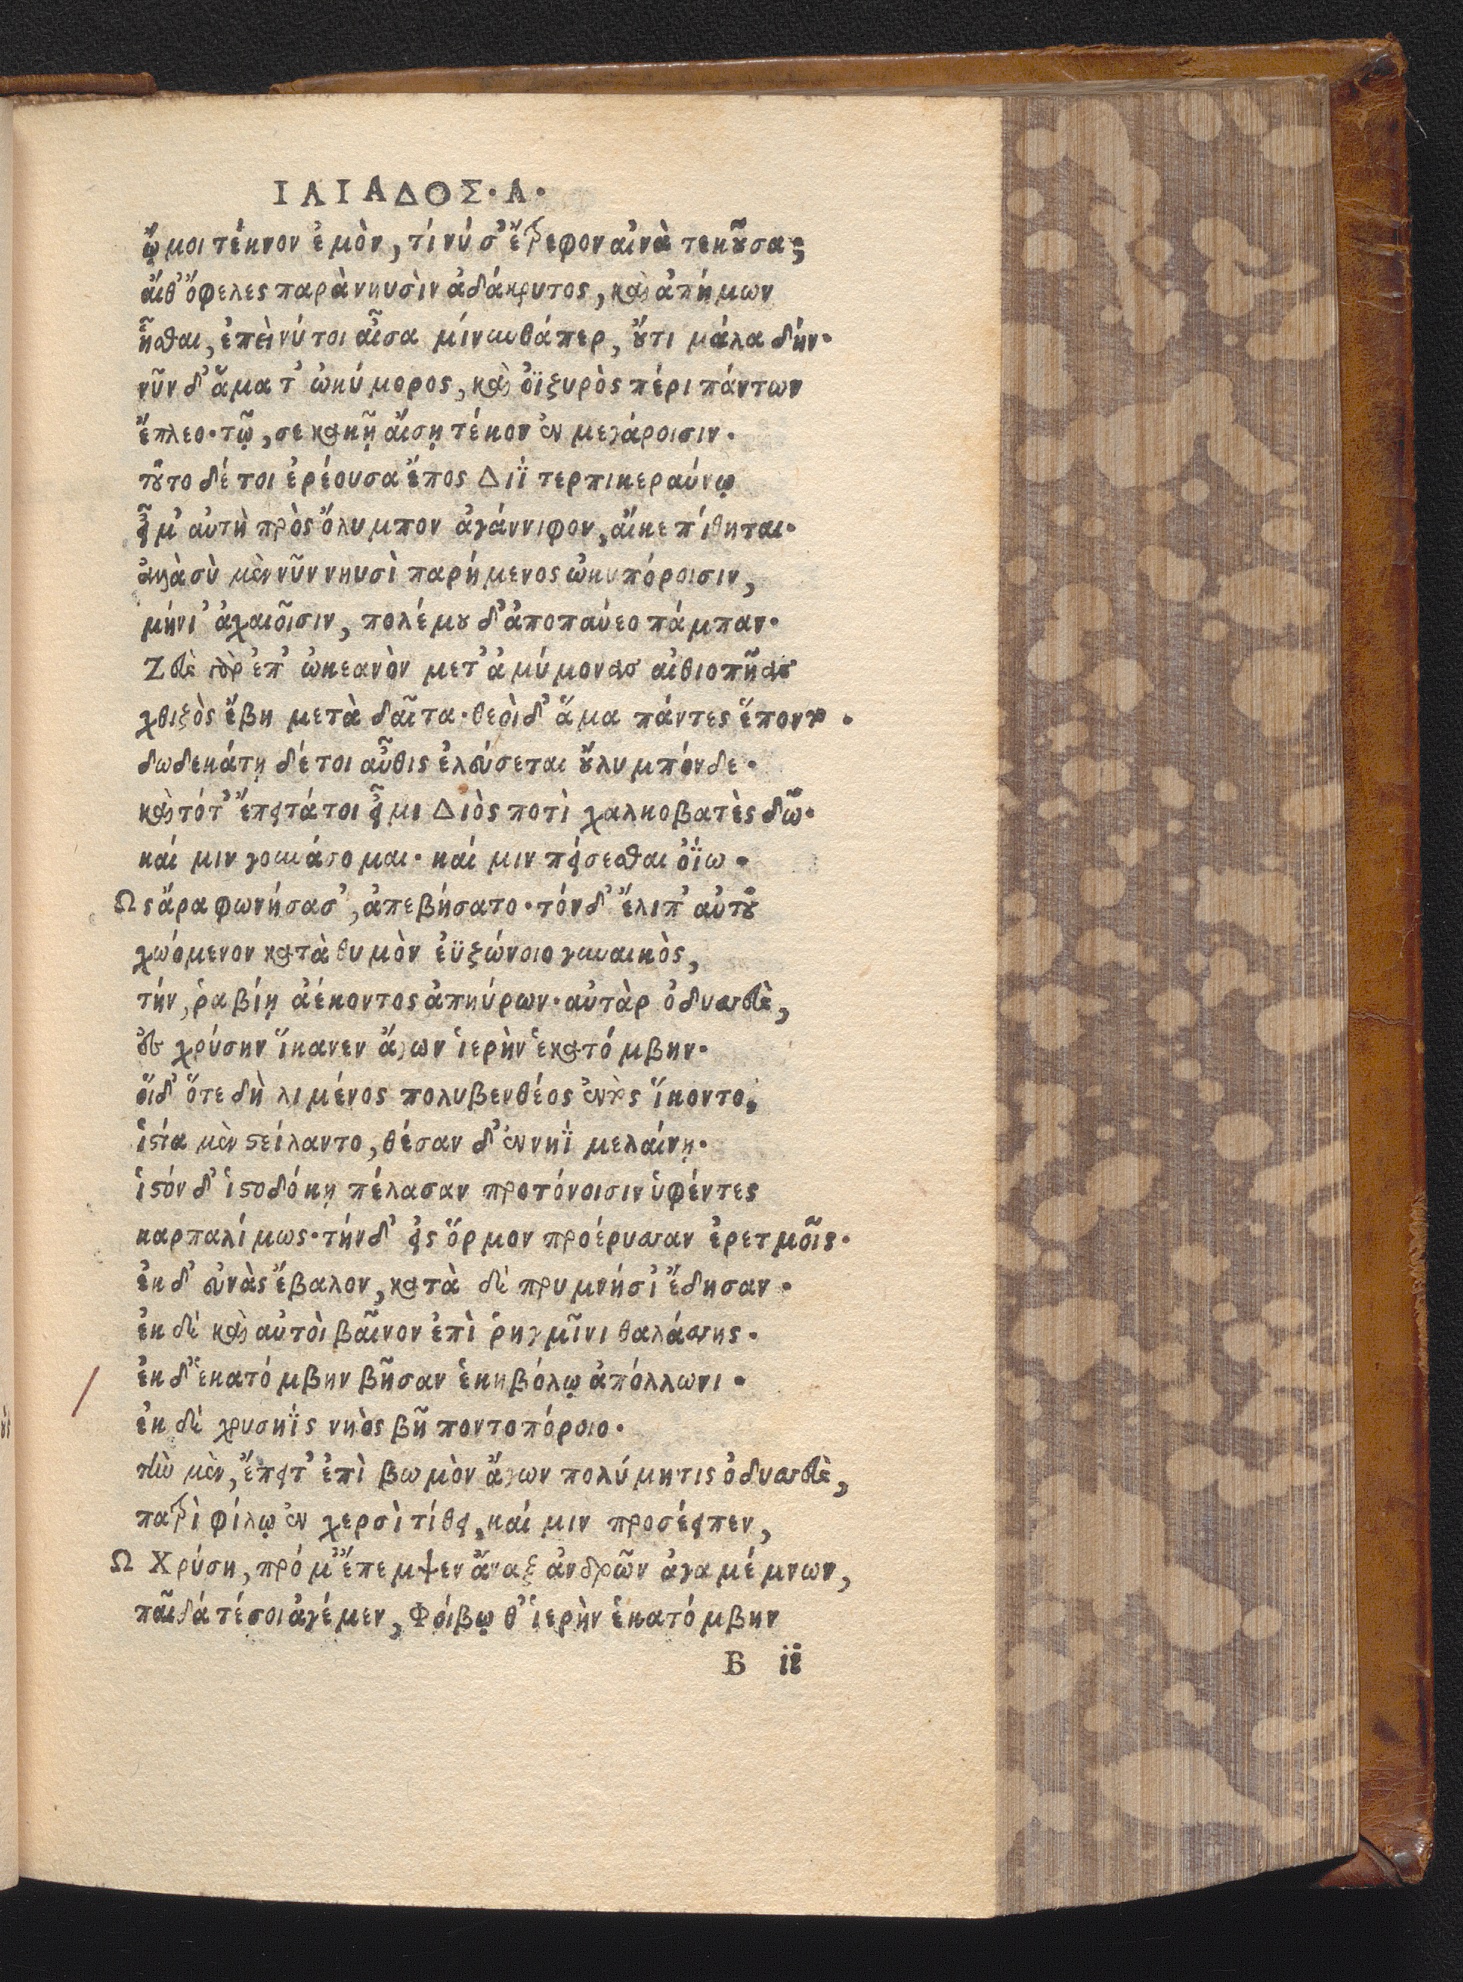 ΙΛΙΑΔΟΣ·Α·
ᾤμοι τέκνον ἐμὸν, τί νύ σ' ἔτρεφον αἰνὰ τεκοῦσα;
αἴθ' ὄφελες παρὰ νηυσὶν ἀδάκρυτος, καὶ ἀπήμων
ἧσθαι, ἐπεὶ νύ τοι αἶσα μίνυνθάπερ, οὔτι μάλα δήν·
νῦν δ' ἅμα τ' ὠκύμορος, καὶ ὀϊξυρὸς πέρι πάντων
ἔπλεο· τῷ, σε κακῇ αἴσῃ τέκον ἐν μεγάροισιν·
τοῦτο δέ τοι ἐρέουσα ἔπος Διῒ τερπικεραύνῳ
εἶμ' αὐτὴ πρὸς ὄλυμπον ἀγάννιφον, αἴκε πίθηται·
ἀλλὰ σὺ μὲν νῦν νηυσὶ παρήμενος ὠκυπόροισιν,
μήνι' ἀχαιοῖσιν, πολέμου δ' ἀποπαύεο πάμπαν·
Ζεὺς γὰρ ἐπ' ὠκεανὸν μετ' ἀμύμονας αἰθιοπῆας
χθιζὸς ἔβη μετὰ δαῖτα· θεοὶ δ' ἅμα πάντες ἕποντο·
δωδεκάτη δέ τοι αὖθις ἐλεύσεται οὔλυμπόνδε·
καὶ τότ' ἔπειτά τοι εἶμι Διὸς ποτὶ χαλκοβατὲς δῶ·
καί μιν γουνάσομαι· καί μιν πείσεσθαι ὀΐω·
Ως ἄρα φωνήσασ', ἀπεβήσατο· τόνδ' ἔλιπ' αὐτοῦ
χωόμενον κατὰ θυμὸν ἐϋζώνοιο γυναικὸς,
τήν, ῥα βίῃ ἀέκοντος ἀπηύρων· αὐτὰρ ὀδυσσεὺς,
ἐς χρύσην ἵκανεν ἄγων ἱερὴν ἑκατόμβην·
οἵδ' ὅτε δὴ λιμένος πολυβενθέος ἐντὸς ἵκοντο,
ἱστία μὲν στείλαντο, θέσαν δ' ἐν νηῒ μελαίνῃ·
ἱστόν δ' ἱστοδόκῃ πέλασαν προτόνοισιν ὑφέντες
καρπαλίμως· τήνδ' εἰς ὅρμον προέρυσσαν ἐρετμοῖς·
ἐκ δ' εὐνὰς ἔβαλον, κατὰ δὲ πρυμνήσι' ἔδησαν·
ἐκ δὲ καὶ αὐτοὶ βαῖνον ἐπὶ ῥηγμῖνι θαλάσσης·
ἐκ δ' ἑκατόμβην βῆσαν ἑκηβόλῳ ἀπόλλωνι·
ἐκ δὲ χρυσηῒς νηὸς βῆ ποντοπόροιο·
τὴν μὲν, ἔπειτ' ἐπὶ βωμὸν ἄγων πολύμητις ὀδυσσεὺς,
πατρὶ φίλῳ ἐν χερσὶ τίθει, καί μιν προσέειπεν,
Ω Χρύση, πρό μ' ἔπεμψεν ἄναξ ἀνδρῶν ἀγαμέμνων,
παῖδά τέ σοι ἀγέμεν, Φοίβῳ θ' ἱερὴν ἑκατόμβην
Β ii